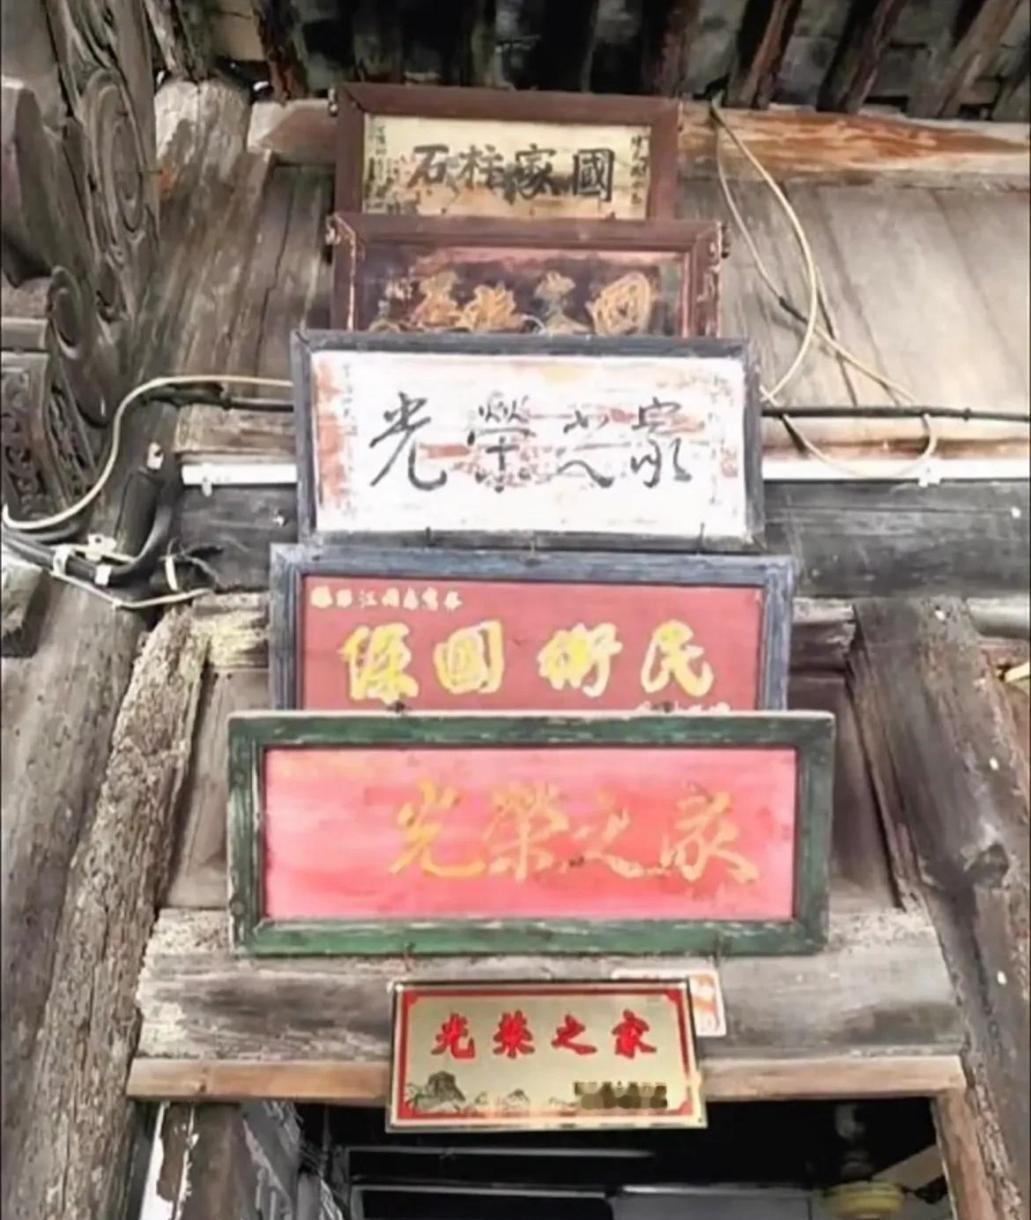 國家柱石
國家柱石
光榮之家
保國衛民
光榮之家
光荣之家